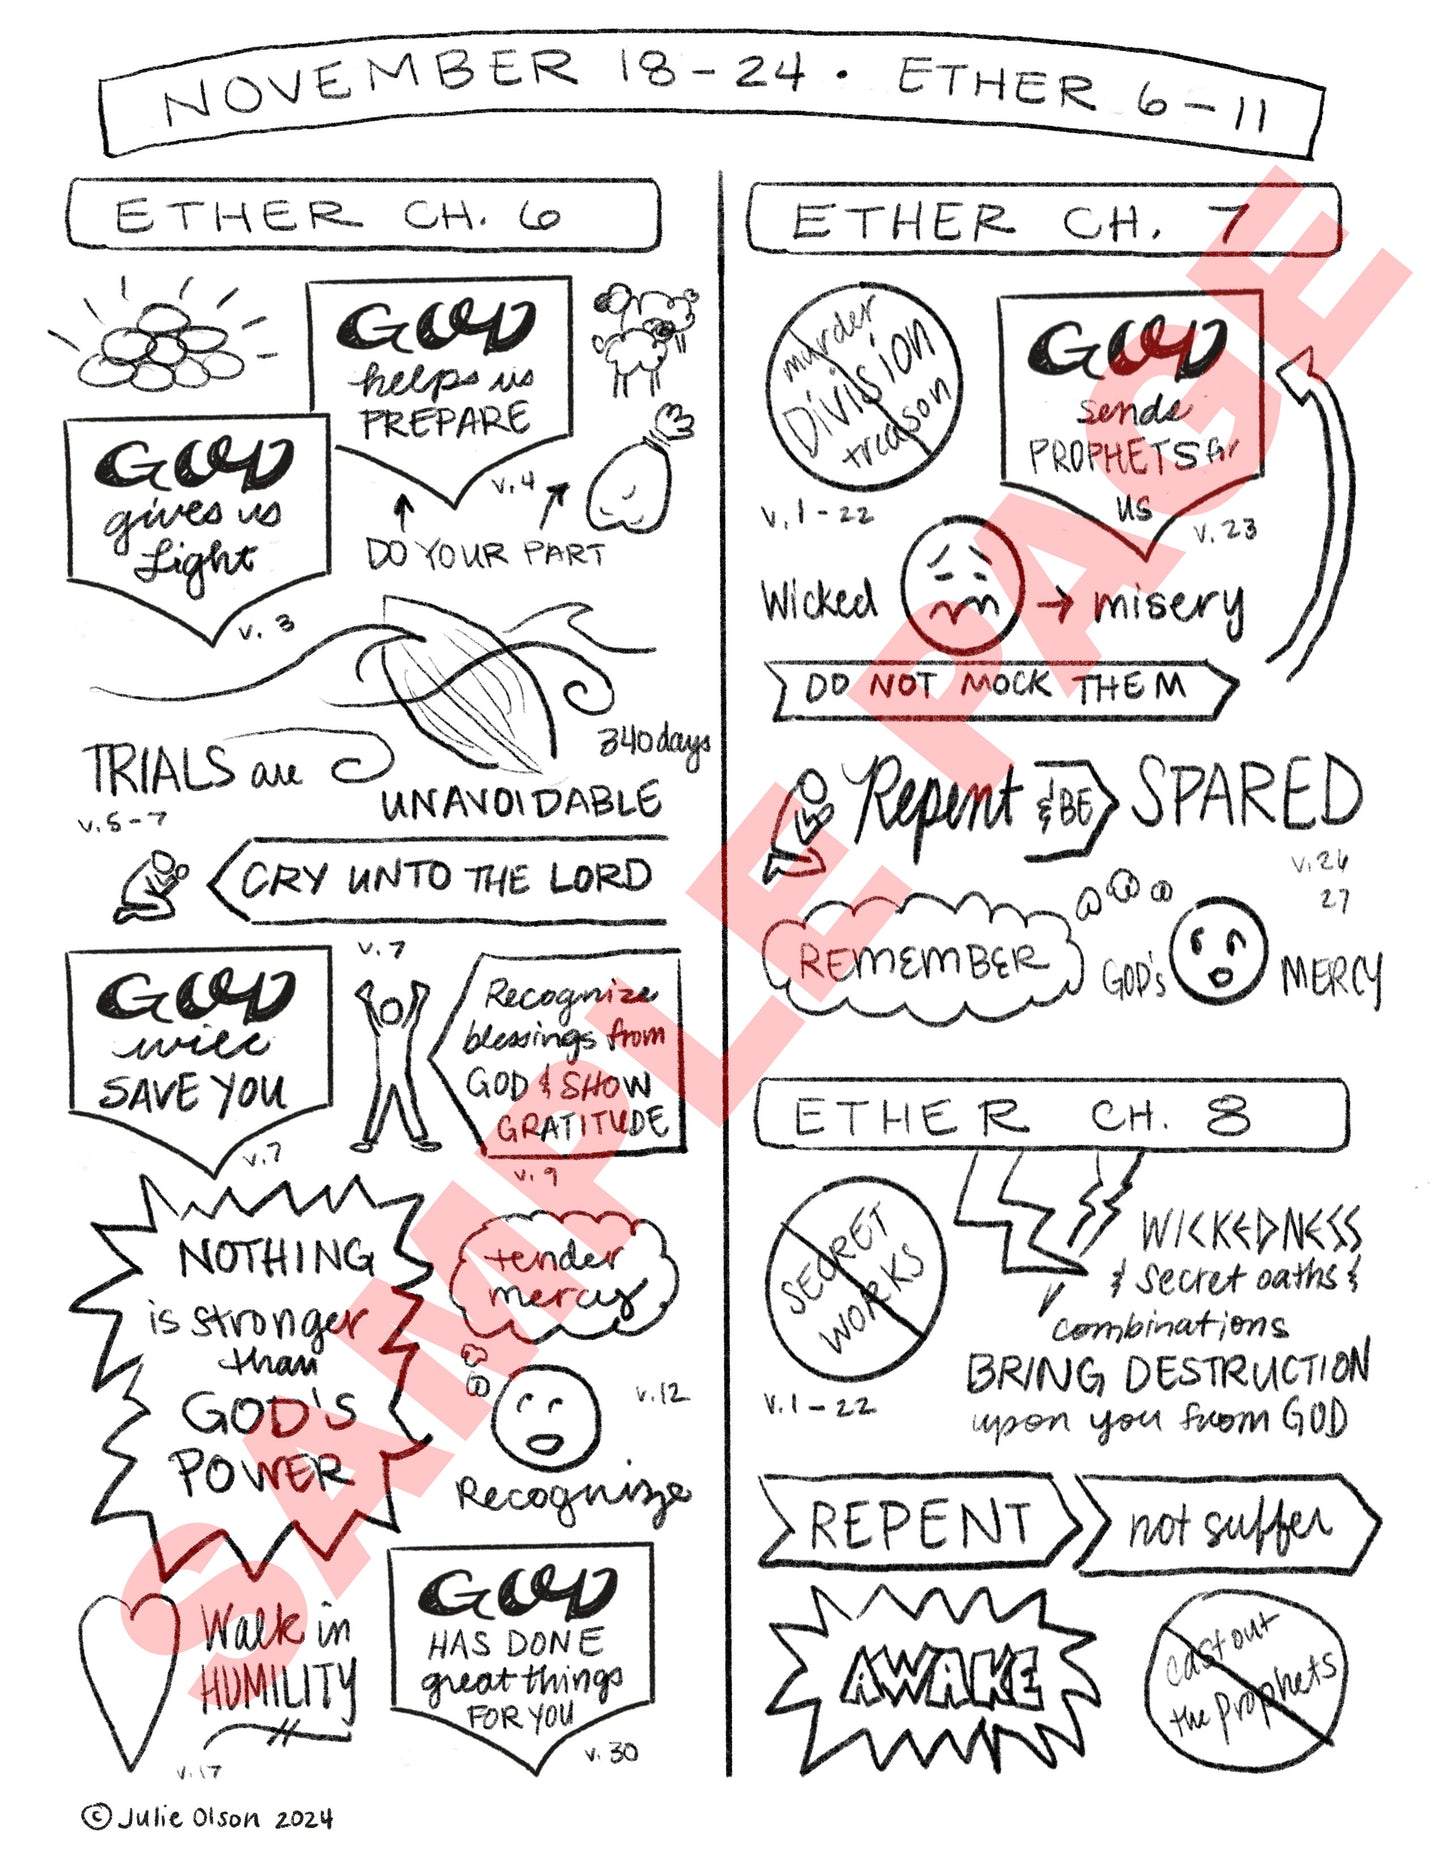 NOVEMBER 18-24 • ETHER 6-11
ETHER CH. 6
GOD
helps us
PREPARE
v. 4
DO YOUR PART
GOD
gives us
Light
v. 3
340 days
TRIALS are
UNAVOIDABLE
v. 5-7
CRY UNTO THE LORD
v. 7
GOD
will
SAVE YOU
v. 7
Recognize
blessings from
GOD & SHOW
GRATITUDE
v. 9
NOTHING
is stronger
than
GOD'S
POWER
tender
mercy
v. 12
Recognize
Walk in
HUMILITY
v. 17
GOD
HAS DONE
great things
FOR YOU
v. 30
© Julie Olson 2024
ETHER CH. 7
murder
Division
treason
v. 1-22
GOD
sends
PROPHETS for
us
v. 23
Wicked → misery
DO NOT MOCK THEM
Repent & BE SPARED
v. 26
27
REMEMBER GOD'S MERCY
ETHER CH. 8
SECRET
WORKS
v. 1-22
WICKEDNESS
& secret oaths &
combinations
BRING DESTRUCTION
upon you from GOD
REPENT not suffer
AWAKE
cast out
the prophets
SAMPLE PAGE